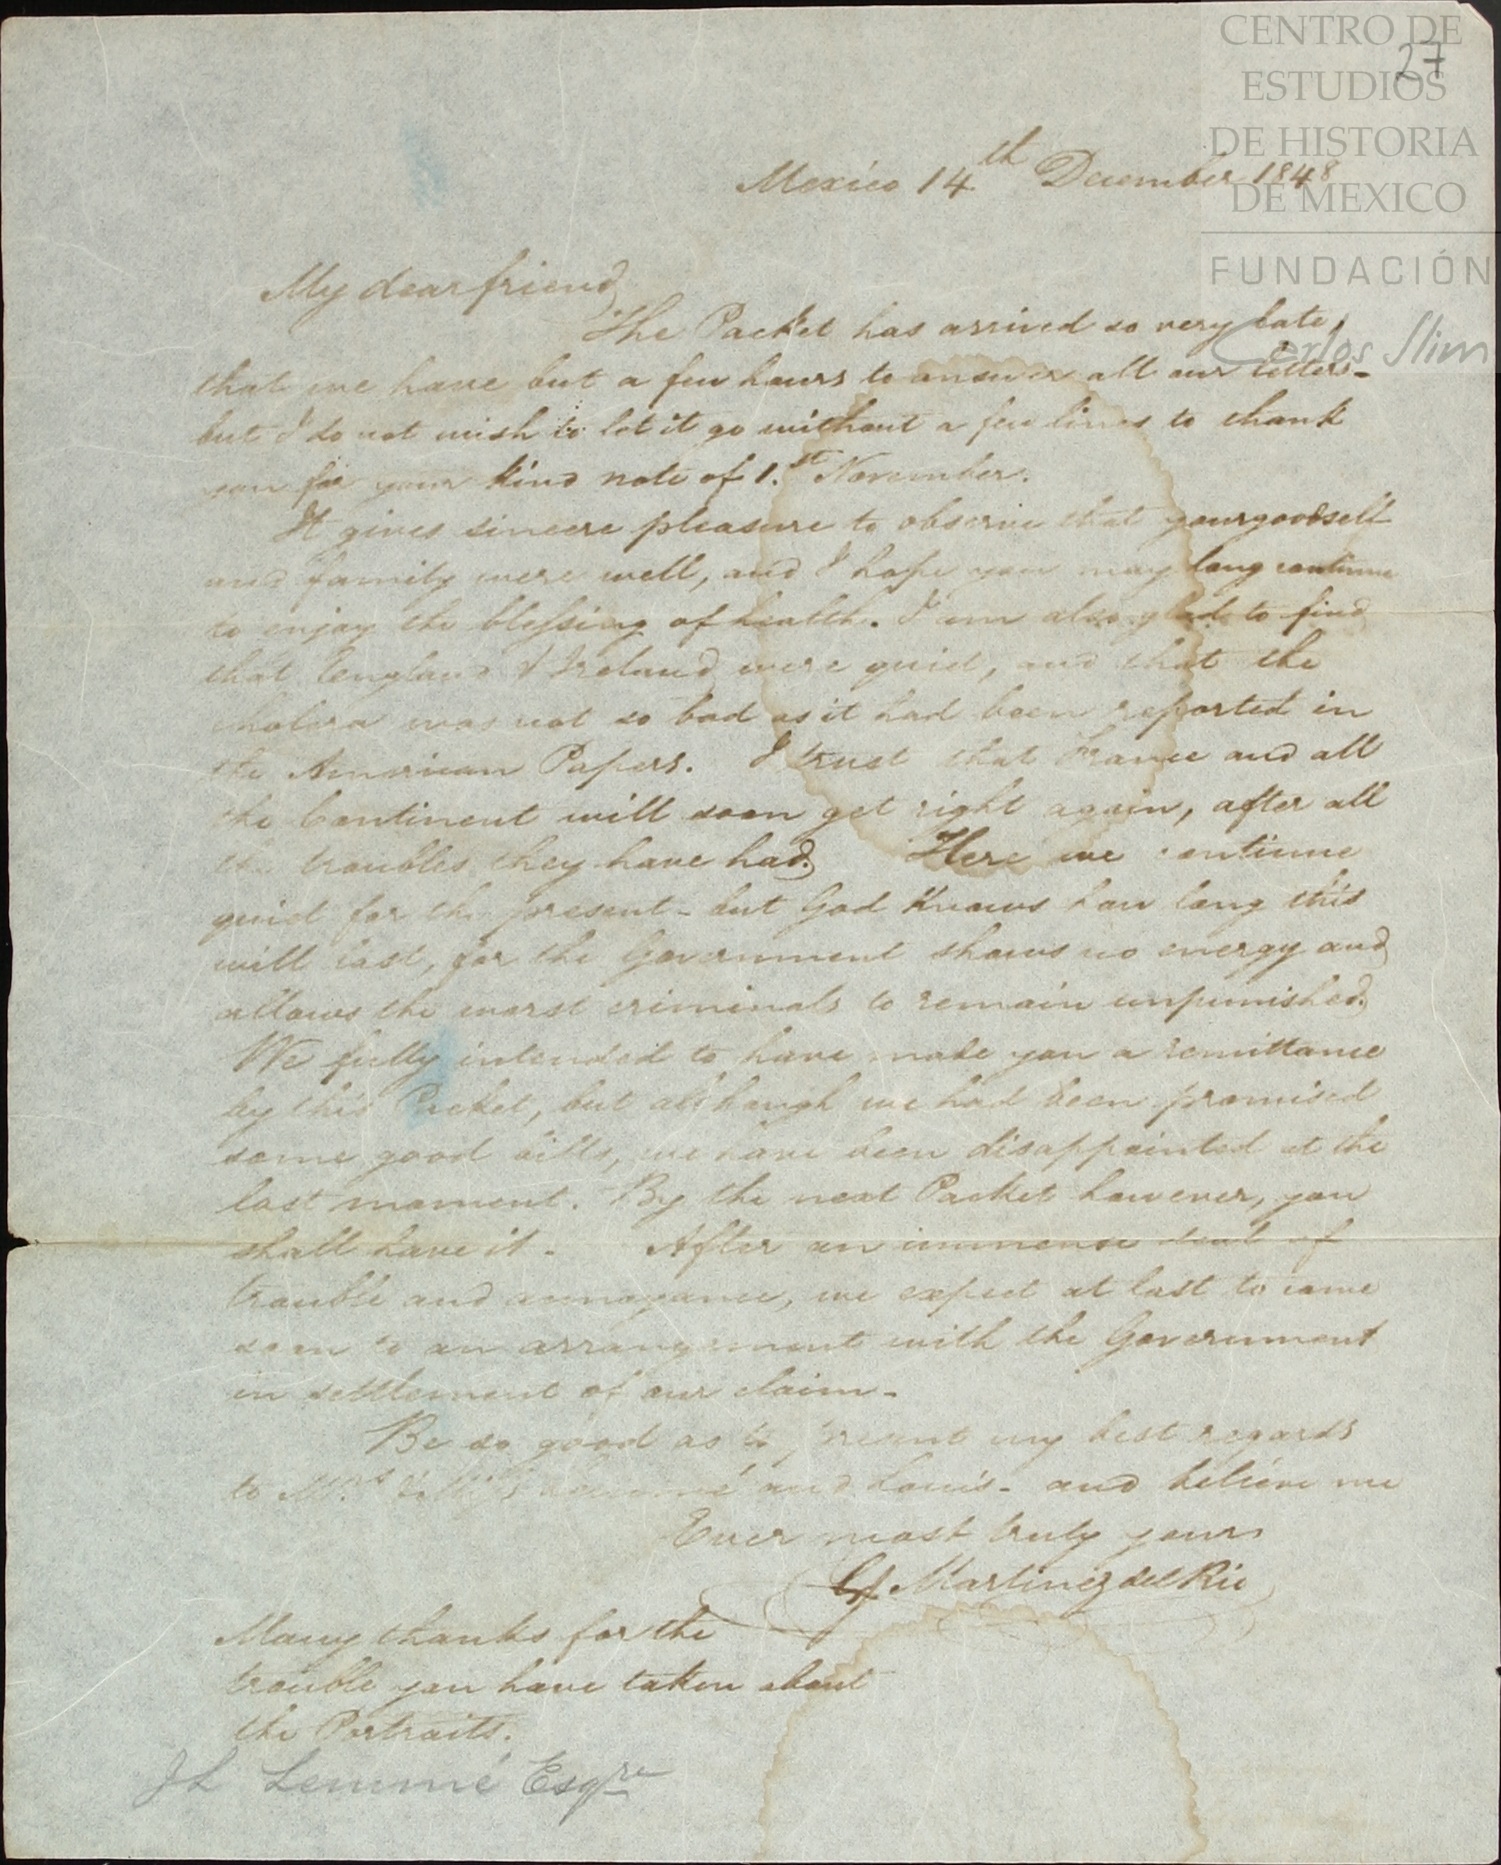 CENTRO DE
ESTUDIOS
DE HISTORIA
DE MEXICO
FUNDACIÓN
Carlos Slim
27
Mexico 14th December 1848
My dear friend
The Packet has arrived so very late,
that we have but a few hours to answer all our letters-
but I do not wish to let it go without a few lines to thank
you for your kind note of 1.st November.
It gives sincere pleasure to observe that yourgoodself
and family were well, and I hope you may long continue
to enjoy the blessing of health. I am also glad to find
that England & Ireland were quiet, and that the
cholera was not so bad as it had been reported in
the American Papers. I trust that France and all
the Continent will soon get right again, after all
the troubles they have had. Here we continue
quiet for the present - but God knows how long this
will last, for the Government shows no energy and
allows the worst criminals to remain unpunished.
We fully intended to have made you a remittance
by this Packet, but although we had been promised
some good bills, we have been disappointed at the
last moment. By the next Packet however, you
shall have it - After an immense deal of
trouble and annoyance, we expect at last to come
soon to an arrangement with the Government
in settlement of our claim -
Be so good as to present my best regards
to Mrs Lemmé and Louis - and believe me
Ever most truly yours
Martinez del Rio
Many thanks for the
trouble you have taken about
the Portraits.
J L Lemmé Esqre